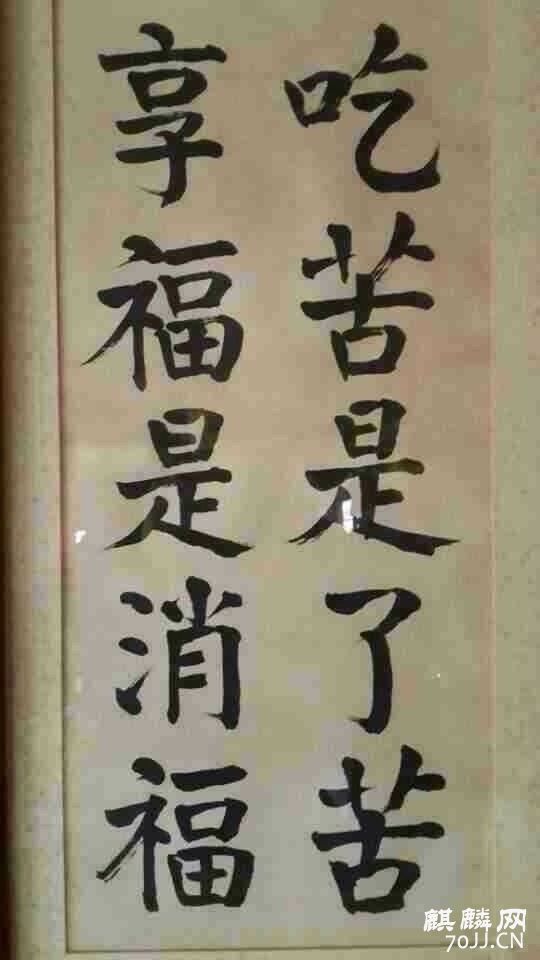 吃苦是了苦
享福是消福
麒麟网
70JJ.CN